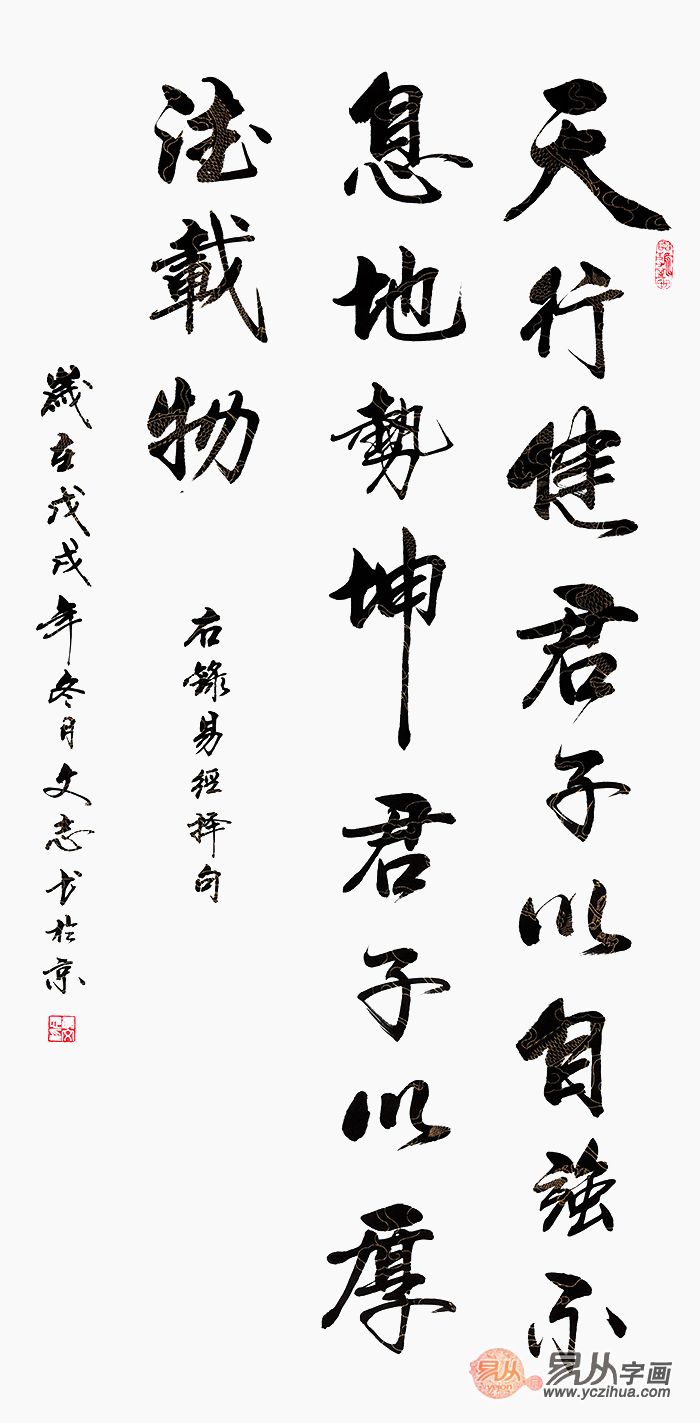 天行健君子以自強不
息地勢坤君子以厚
德載物
右錄易經擇句
歲在戊戌年冬月文志书於京
易从
易从字画
www.yczihua.com